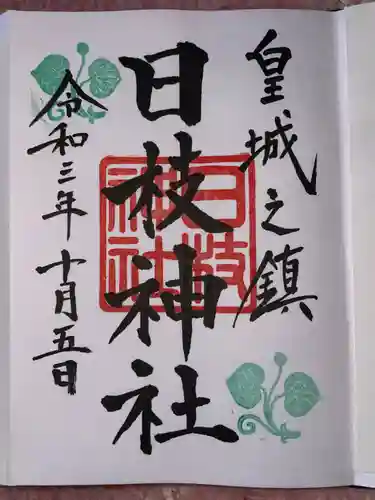 皇城之鎮
日枝神社
日枝神社
令和三年十月五日